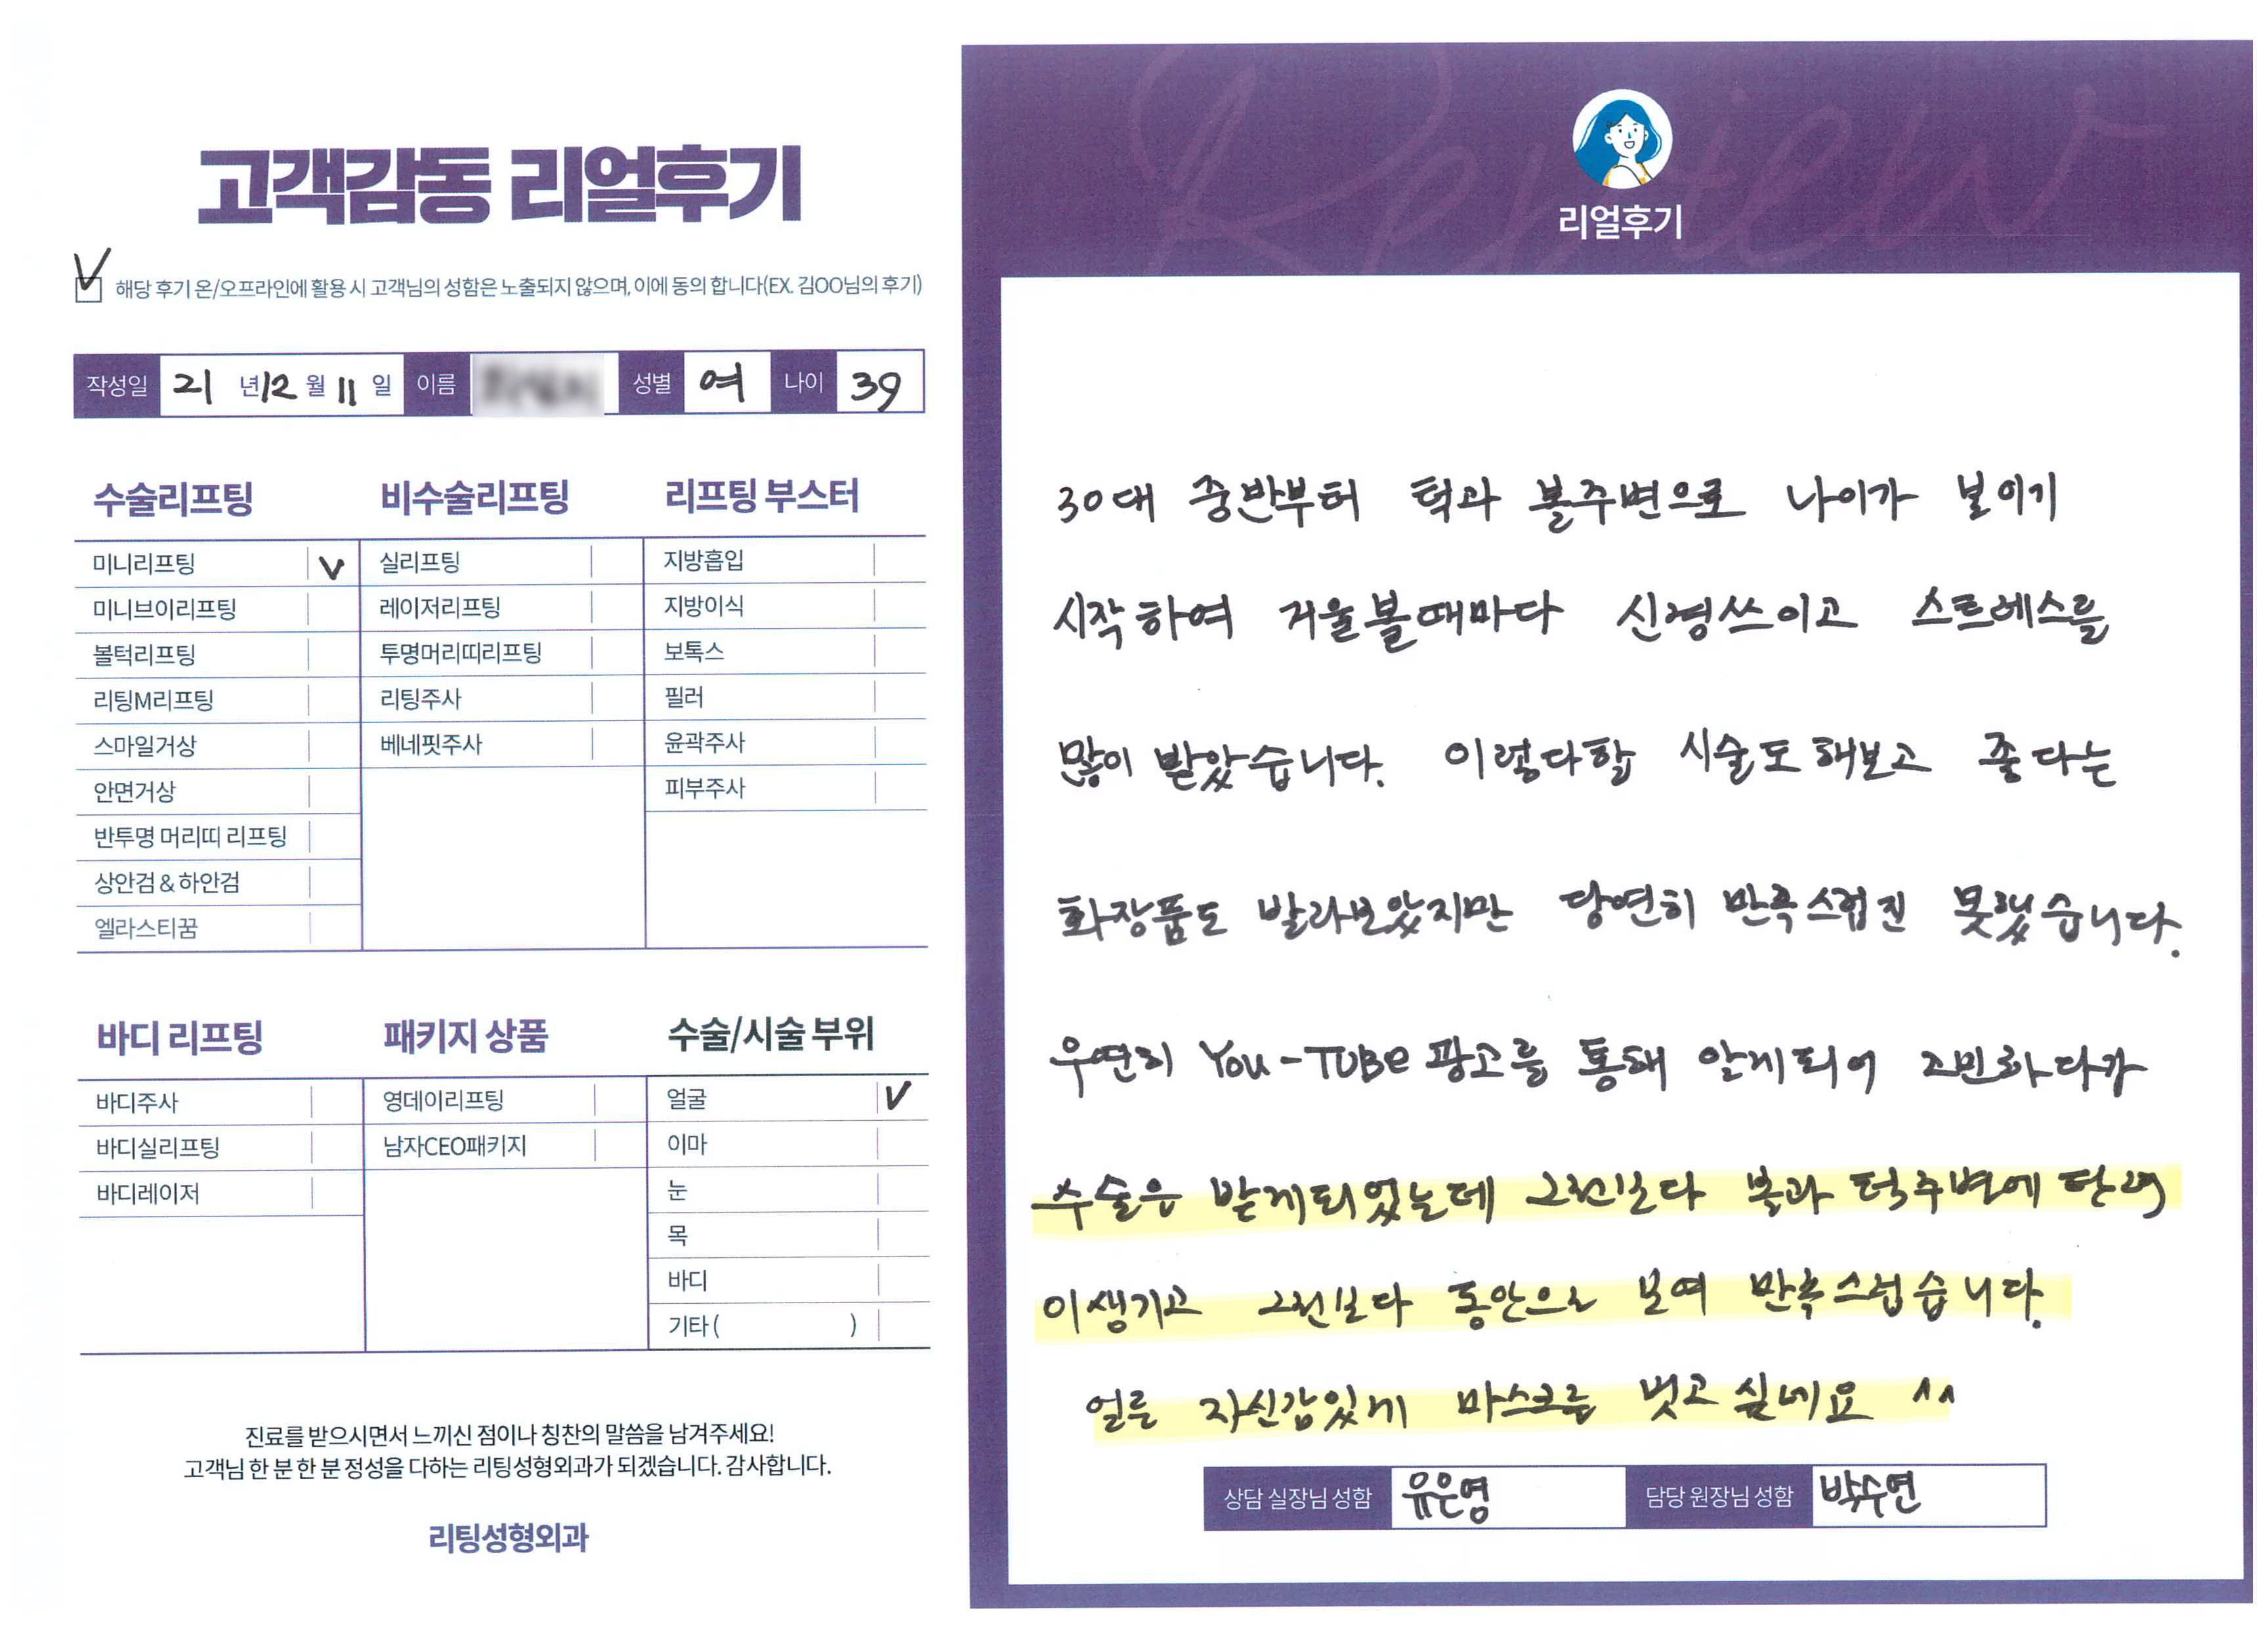 고객감동 리얼후기
해당 후기 온/오프라인에 활용 시 고객님의 성함은 노출되지 않으며, 이에 동의 합니다(EX. 김OO님의 후기)
작성일 21 년 12 월 11 일 이름 성별 여 나이 39
수술리프팅
미니리프팅 V
미니브이리프팅
볼턱리프팅
리팅M리프팅
스마일거상
안면거상
반투명 머리띠 리프팅
상안검 & 하안검
엘라스티꿈
비수술리프팅
실리프팅
레이저리프팅
투명머리띠리프팅
리팅주사
베네핏주사
리프팅 부스터
지방흡입
지방이식
보톡스
필러
윤곽주사
피부주사
바디 리프팅
바디주사
바디실리프팅
바디레이저
패키지 상품
영데이리프팅
남자CEO패키지
수술/시술 부위
얼굴 V
이마
눈
목
바디
기타 ( )
진료를 받으시면서 느끼신 점이나 칭찬의 말씀을 남겨주세요!
고객님 한 분 한 분 정성을 다하는 리팅성형외과가 되겠습니다. 감사합니다.
리팅성형외과
Review
리얼후기
30대 중반부터 턱과 볼주변으로 나이가 보이기
시작하여 거울볼때마다 신경쓰이고 스트레스를
많이 받았습니다. 이렇다할 시술도 해보고 좋다는
화장품도 발라보았지만 당연히 만족스럽진 못했습니다.
우연히 You-TUBe 광고를 통해 알게되어 고민하다가
수술을 받게되었는데 그전보다 볼과 턱주변에 탄력
이생기고 그전보다 동안으로 보여 만족스럽습니다.
얼른 자신감있게 마스크를 벗고싶네요 ^^
상담 실장님 성함 유은영 담당 원장님 성함 박수연